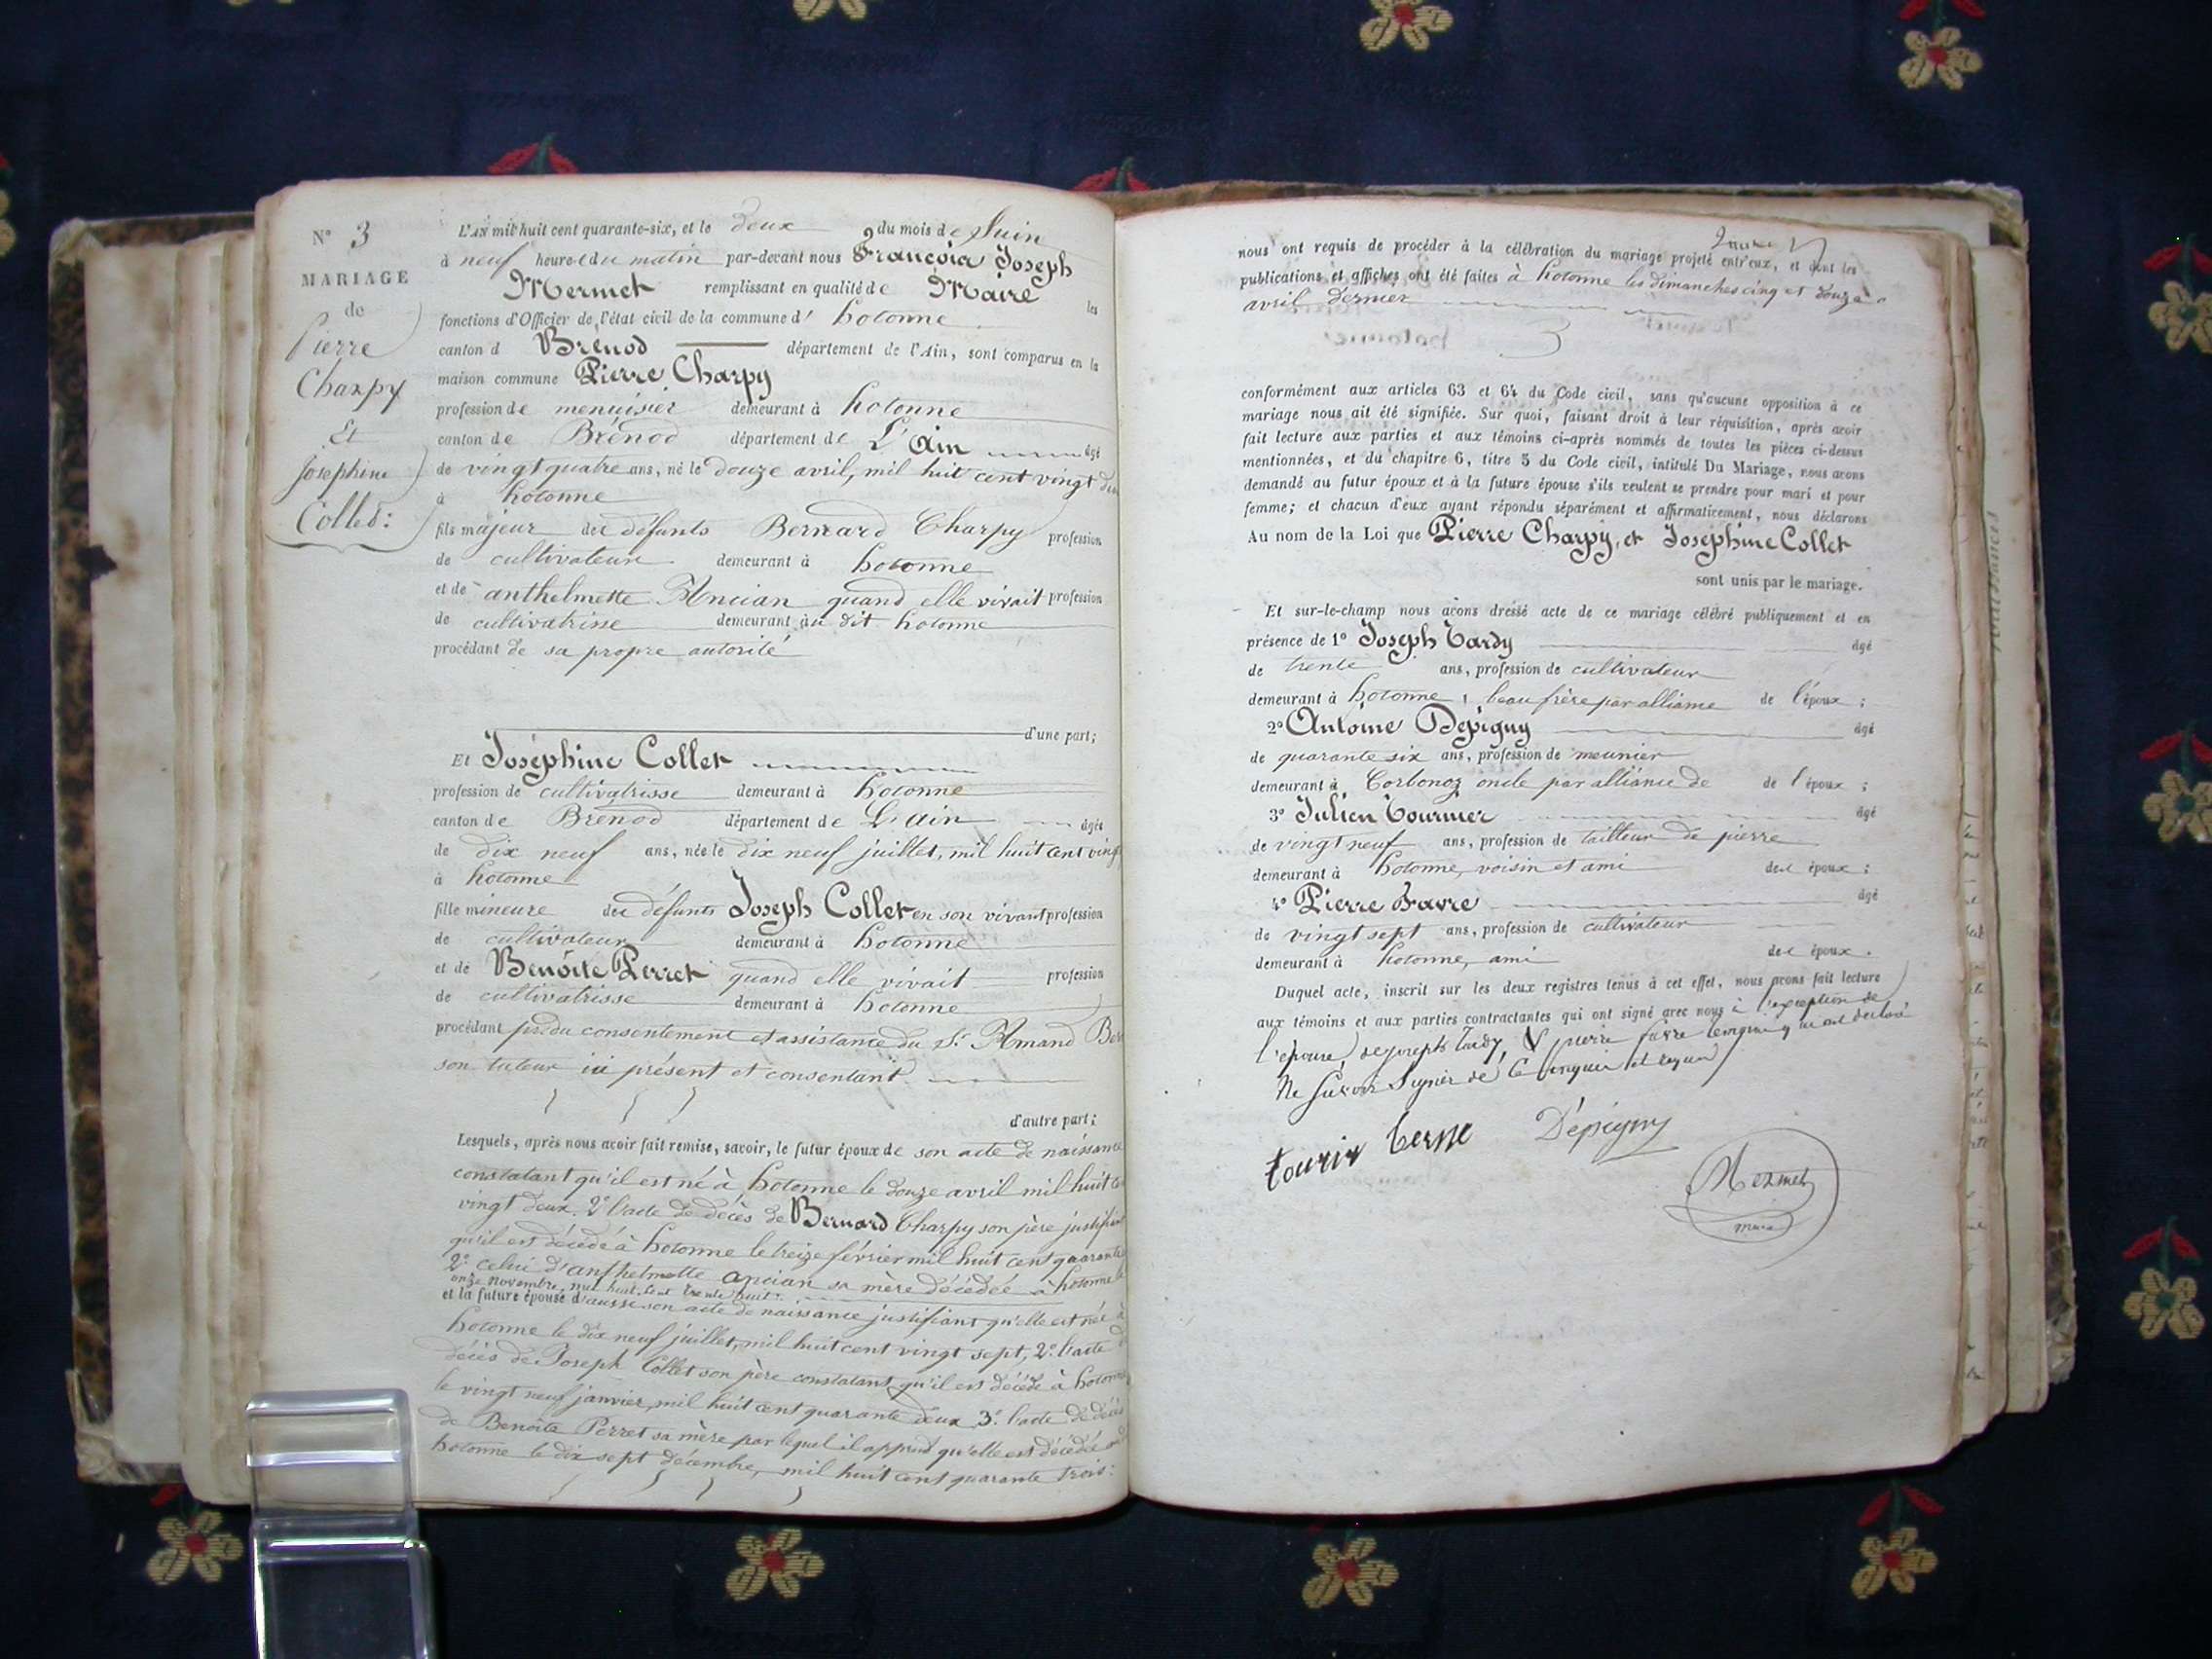 N° 3
MARIAGE
de
Pierre
Charpy
Et
Joséphine
Collet:
L'AN mil huit cent quarante-six, et le deux du mois de Juin
à neuf heures du matin par-devant nous François Joseph
Mermet remplissant en qualité de Maire les
fonctions d'Officier de l'état civil de la commune d' hotonne
canton d Brénod département de l'Ain, sont comparus en la
maison commune Pierre Charpy
profession de menuisier demeurant à hotonne
canton de Brénod département de L'Ain âgé
de vingt quatre ans, né le douze avril, mil huit cent vingt deux
à hotonne
fils majeur des défunts Bernard Charpy profession
de cultivateur demeurant à hotonne
et de anthelmette Ancian quand elle vivait profession
de cultivatrisse demeurant au dit hotonne
procédant de sa propre autorité
d'une part;
Et Joséphine Collet
profession de cultivatrisse demeurant à hotonne
canton de Brénod département de L'Ain âgée
de dix neuf ans, née le dix neuf juillet, mil huit cent vingt
à hotonne
fille mineure des défunts Joseph Collet en son vivant profession
de cultivateur demeurant à hotonne
et de Benoite Perret quand elle vivait profession
de cultivatrisse demeurant à hotonne
procédant du consentement et assistance du Sr Amand
son tuteur ici présent et consentant
d'autre part;
Lesquels, après nous avoir fait remise, savoir, le futur époux de son acte de naissance
constatant qu'il est né à hotonne le douze avril mil huit
vingt deux. 2° l'acte de décès de Bernard Charpy son père justifiant
qu'il est décédé à hotonne le treize février mil huit cent quarante
2° celui d'anthelmette ancian sa mère décédée à hotonne le
onze novembre, mil huit cent trente huit.
et la future épouse d'aussi son acte de naissance justifiant qu'elle est née à
hotonne le dix neuf juillet, mil huit cent vingt sept, 2° l'acte
décès de Joseph Collet son père constatant qu'il est décédé à hotonne
le vingt neuf janvier, mil huit cent quarante deux 3° l'acte de décès
de Benoite Perret sa mère par lequel il apprend qu'elle est décédée
hotonne le dix sept décembre, mil huit cent quarante trois:
nous ont requis de procéder à la célébration du mariage projeté entr'eux, et dont les
publications et affiches ont été faites à hotonne les dimanches cinq et douze
avril dernier
conformément aux articles 63 et 64 du Code civil, sans qu'aucune opposition à ce
mariage nous ait été signifiée. Sur quoi, faisant droit à leur réquisition, après avoir
fait lecture aux parties et aux témoins ci-après nommés de toutes les pièces ci-dessus
mentionnées, et du chapitre 6, titre 5 du Code civil, intitulé Du Mariage, nous avons
demandé au futur époux et à la future épouse s'ils veulent se prendre pour mari et pour
femme; et chacun d'eux ayant répondu séparément et affirmativement, nous déclarons
Au nom de la Loi que Pierre Charpy, et Joséphine Collet
sont unis par le mariage.
Et sur-le-champ nous avons dressé acte de ce mariage célébré publiquement et en
présence de 1° Joseph Tardy âgé
de trente ans, profession de cultivateur
demeurant à hotonne, beau frère par alliance de l'époux;
2° Antoine Dépigny âgé
de quarante six ans, profession de meunier
demeurant à Corbonoz oncle par alliance de de l'époux;
3° Julien Tournier âgé
de vingt neuf ans, profession de tailleur de pierre
demeurant à hotonne, voisin et ami de l époux;
4° Pierre Favre âgé
de vingt sept ans, profession de cultivateur
demeurant à hotonne, ami de l époux.
Duquel acte, inscrit sur les deux registres tenus à cet effet, nous avons fait lecture
aux témoins et aux parties contractantes qui ont signé avec nous à l'exception de
l'épouse, de joseph tardy pierre favre
Ne Savoir Signer de
Dépigny
Mermet
maire